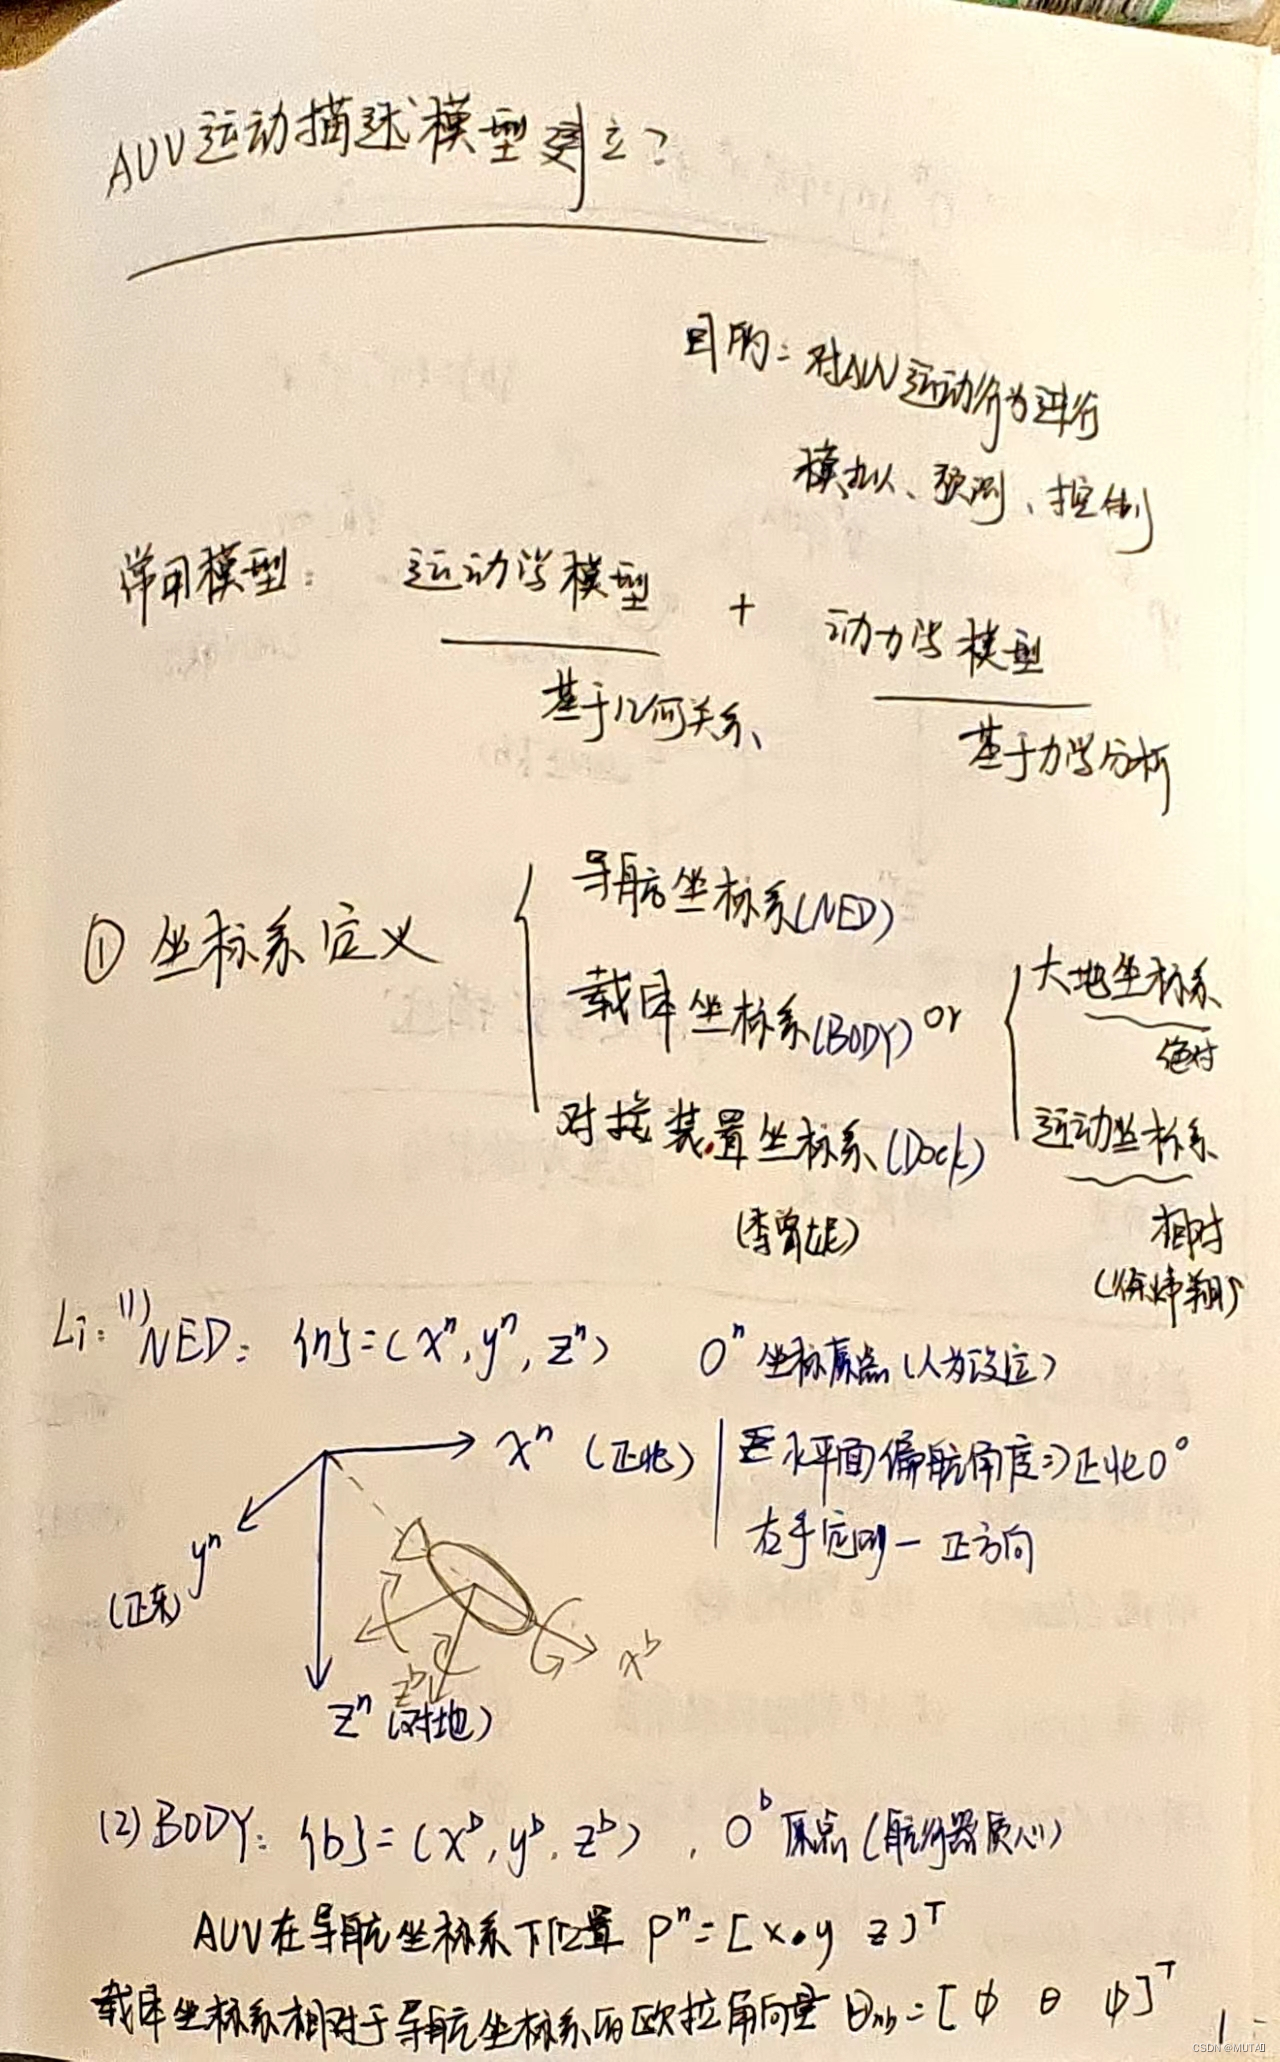 AUV运动描述模型建立?
目的: 对AUV运动行为进行
模拟、预测、控制
常用模型: 运动学模型 + 动力学模型
基于几何关系、
基于力学分析
① 坐标系定义
导航坐标系(NED)
载体坐标系(BODY) or
对接装置坐标系(Dock)
(李曾妮)
大地坐标系
绝对
运动坐标系
相对
Li: (1) NED: {n}=(xⁿ, yⁿ, zⁿ) Oⁿ 坐标原点(人为设定)
xⁿ (正北)
水平面偏航角度⇒正北0°
右手定则一正方向
yⁿ
(正东)
xᵇ
zᵇ
zⁿ (对地)
(2) BODY: {b}=(xᵇ, yᵇ, zᵇ), Oᵇ 原点(航行器质心)
AUV在导航坐标系下位置 Pⁿ=[x y z]ᵀ
载体坐标系相对于导航坐标系的欧拉角向量 Θnb=[φ θ ψ]ᵀ
1
CSDN @MUTA